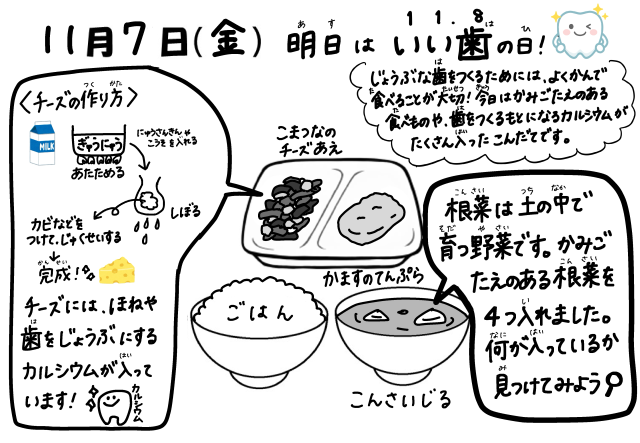 11月7日(金) 明日は いい歯の日！
あす 11.8 は ひ
じょうぶな歯をつくるためには、よくかんで
食べることが大切！今日はかみごたえのある
食べものや、歯をつくるもとになるカルシウムが
たくさん入ったこんだてです。
〈チーズの作り方〉
MILK
ぎゅうにゅう
あたためる
にゅうさんきんや
こうそを入れる
しぼる
カビなどを
つけて、じゅくせいする
完成！
チーズには、ほねや
歯をじょうぶにする
カルシウムが入って
います！
カルシウム
こまつなの
チーズあえ
かますのてんぷら
ごはん
こんさいじる
根菜は土の中で
育つ野菜です。かみご
たえのある根菜を
4つ入れました。
何が入っているか
見つけてみよう